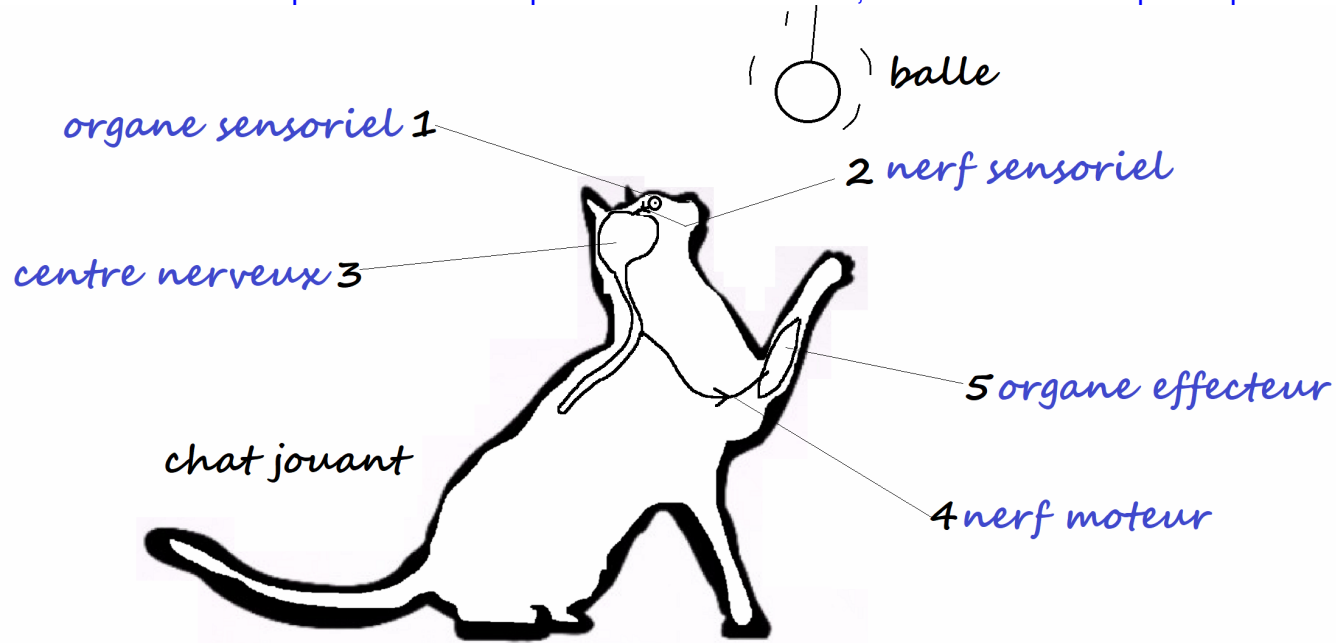 balle
organe sensoriel 1
2 nerf sensoriel
centre nerveux 3
5 organe effecteur
chat jouant
4 nerf moteur